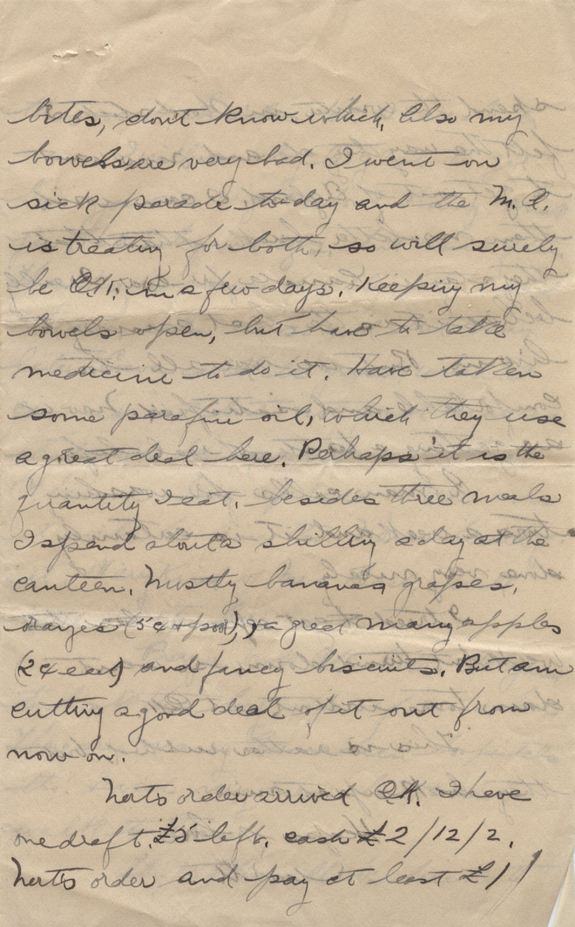 bites, don't know which. Also my
bowels are very bad. I went on
sick parade to-day and the M.O.
is treating for both, so will surely
be O.K. in a few days. Keeping my
bowels open, but have to take
medicine to do it. Have taken
some parafine oil, which they use
a great deal here. Perhaps it is the
quantity I eat, besides three meals
I spend about a shilling a day at the
canteen. Mostly bananas grapes,
oranges (5¢ + a great many apples
(2¢ each) and fancy biscuits. But am
cutting a good deal of it out from
now on.
order arrived O.K. I have
one draft, £5 left. cash £2/12/2.
order and pay at least £1